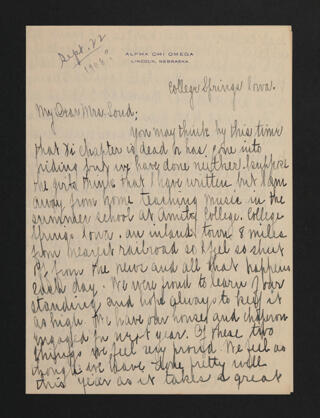 Sept. 22
1908?
ALPHA CHI OMEGA
LINCOLN, NEBRASKA
College Springs Iowa.
My Dear Mrs. Loud;
You may think by this time
that Xi chapter is dead or has gone into
hiding but we have done neither. I suppose
the girls think that I have written but I am
away from home teaching music in the
summer school at Amity College. College
Springs Iowa. an inland town 8 miles
from nearest railroad so I feel so shut
off from the news and all that happens
each day. We were proud to learn of our
standing and hope always to keep it
as high. We have our house and chaperon
engaged for next year. Of these two
things we feel very proud. We feel as
though we have done pretty well
this year as it takes a great